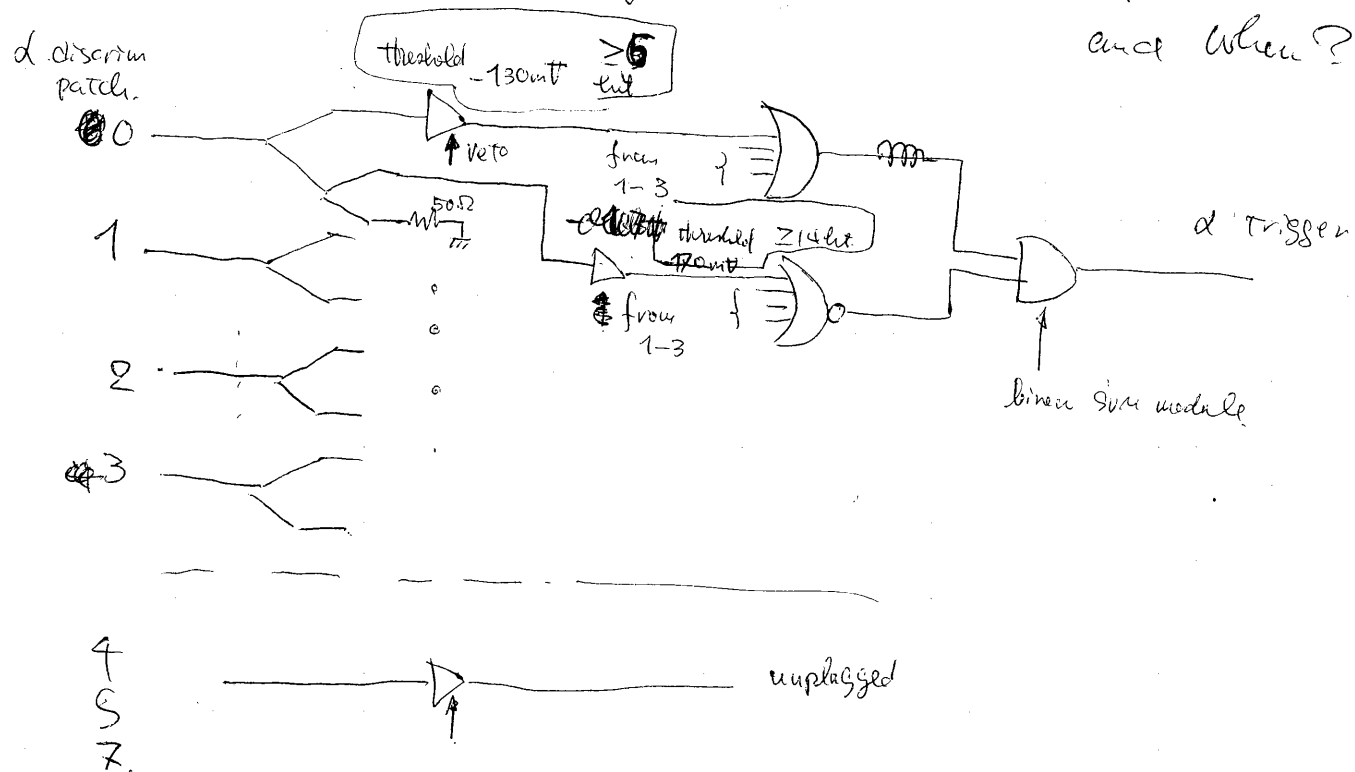 and when?
α discrim
patch.
threshold
-130mV
≥6
hit
0
veto
from
1-3
50Ω
1
threshold ≥14 hit
170mV
α Trigger
from
1-3
2
linear sum module
3
4
unplugged
5
7.